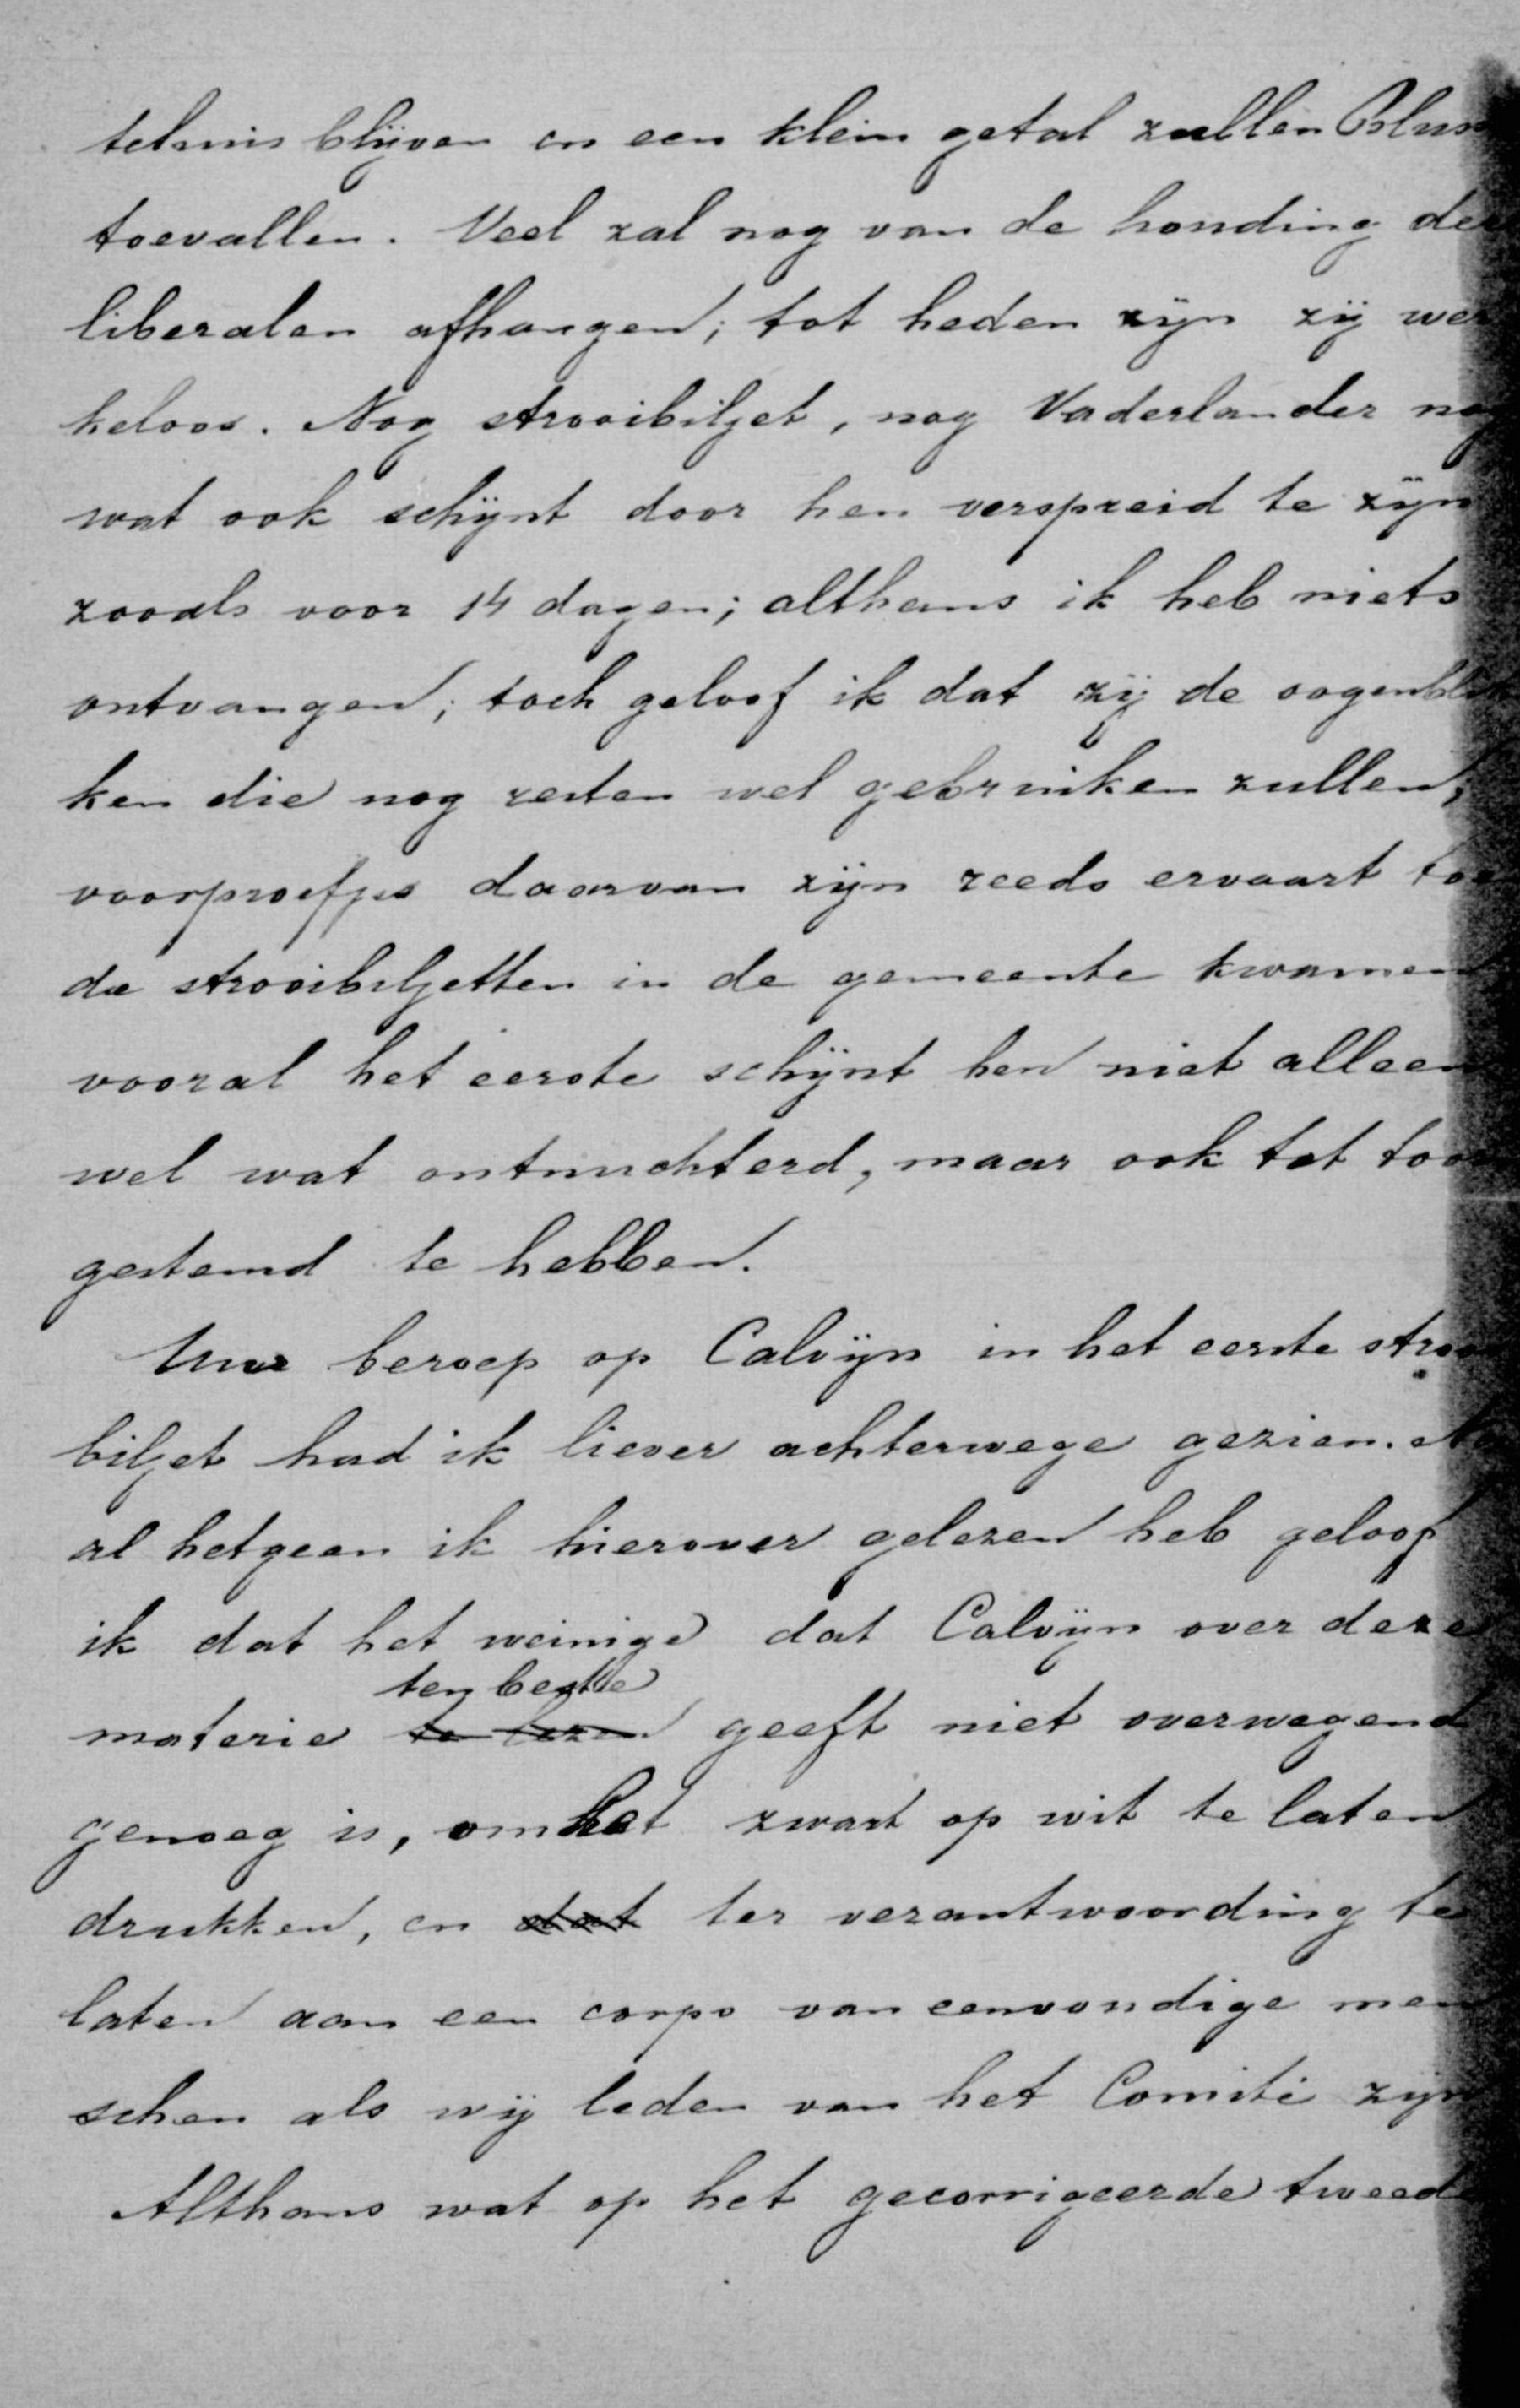 telmis blijven en een klein getal zullen Blus
toevallen. Veel zal nog van de houding der
liberalen afhangen; tot heden zijn zij wer
keloos. Nog strooibiljet, nog Vaderlander nog
wat ook schijnt door hen verspreid te zijn
zooals voor 14 dagen; althans ik heb niets
ontvangen; toch geloof ik dat zij de oogenblik
ken die nog resten wel gebruiken zullen;
voorproefjes daarvan zijn reeds ervaart toen
de strooibiljetten in de gemeente kwamen
vooral het eerste schijnt hen niet alleen
wel wat ontnuchterd, maar ook tot toorn
gestemd te hebben.
Uwe beroep op Calvijn in het eerste strooi
biljet had ik liever achterwege gezien. Na
al hetgeen ik hierover gelezen heb geloof
ik dat het weinige dat Calvijn over deze
ten beste
materie te lezen geeft niet overwegend
genoeg is, om het zwart op wit te laten
drukken, en dat ter verantwoording te
laten aan een corps van eenvoudige men
schen als wij leden van het Comité zijn
Althans wat op het gecorrigeerde tweede